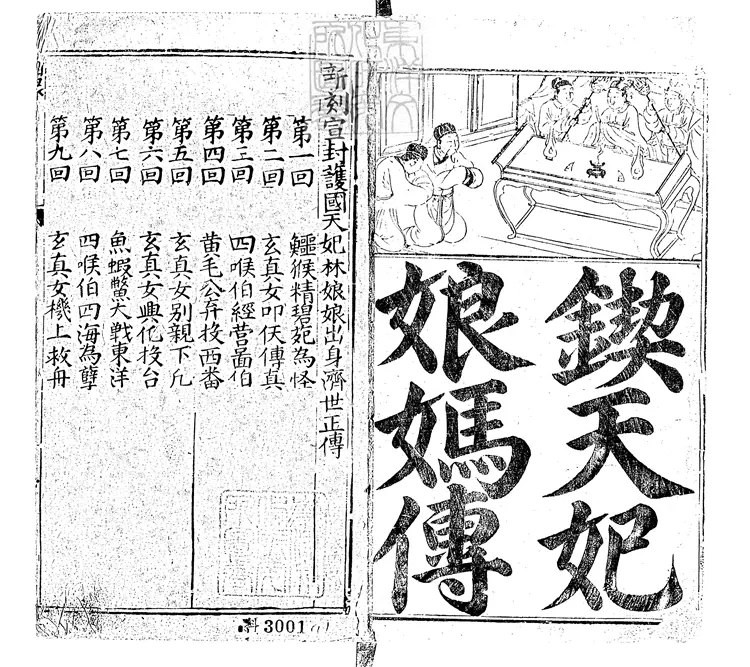 鍥天妃
娘媽傳
新刻宣封護國天妃林娘娘出身濟世正傳
第一回 鱷猴精碧妃為怪
第二回 玄真女叩天傳真
第三回 四喉伯經营啚伯
第四回 黄毛公弃投西番
第五回 玄真女别親下凢
第六回 玄真女興化投台
第七回 魚蝦鱉大戰東洋
第八回 四喉伯四海為孽
第九回 玄真女機上救舟
科3001